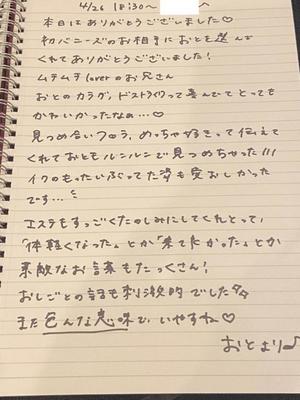 4/26 18:30〜 へ
本日はありがとうございました♡
初バニーズのお相手におとを選んで
くれてありがとうございました!
ムチムチloverのお兄さん
おとのカラダ、ドストライクって喜んでてとっても
かわいかったなぁ…♡
見つめ合いフロラ、めっちゃ好きって伝えて
くれておともルンルンで見つめちゃった///
イクのもったいぶってた姿も愛おしかった
です…
エステもすっごくたのしみにしてくれとって、
「体軽くなった」とか「来てよかった」とか
素敵なお言葉もたっくさん!
おしごとの話も刺激的でした
また色んな意味でいやすね♡
おとより♪